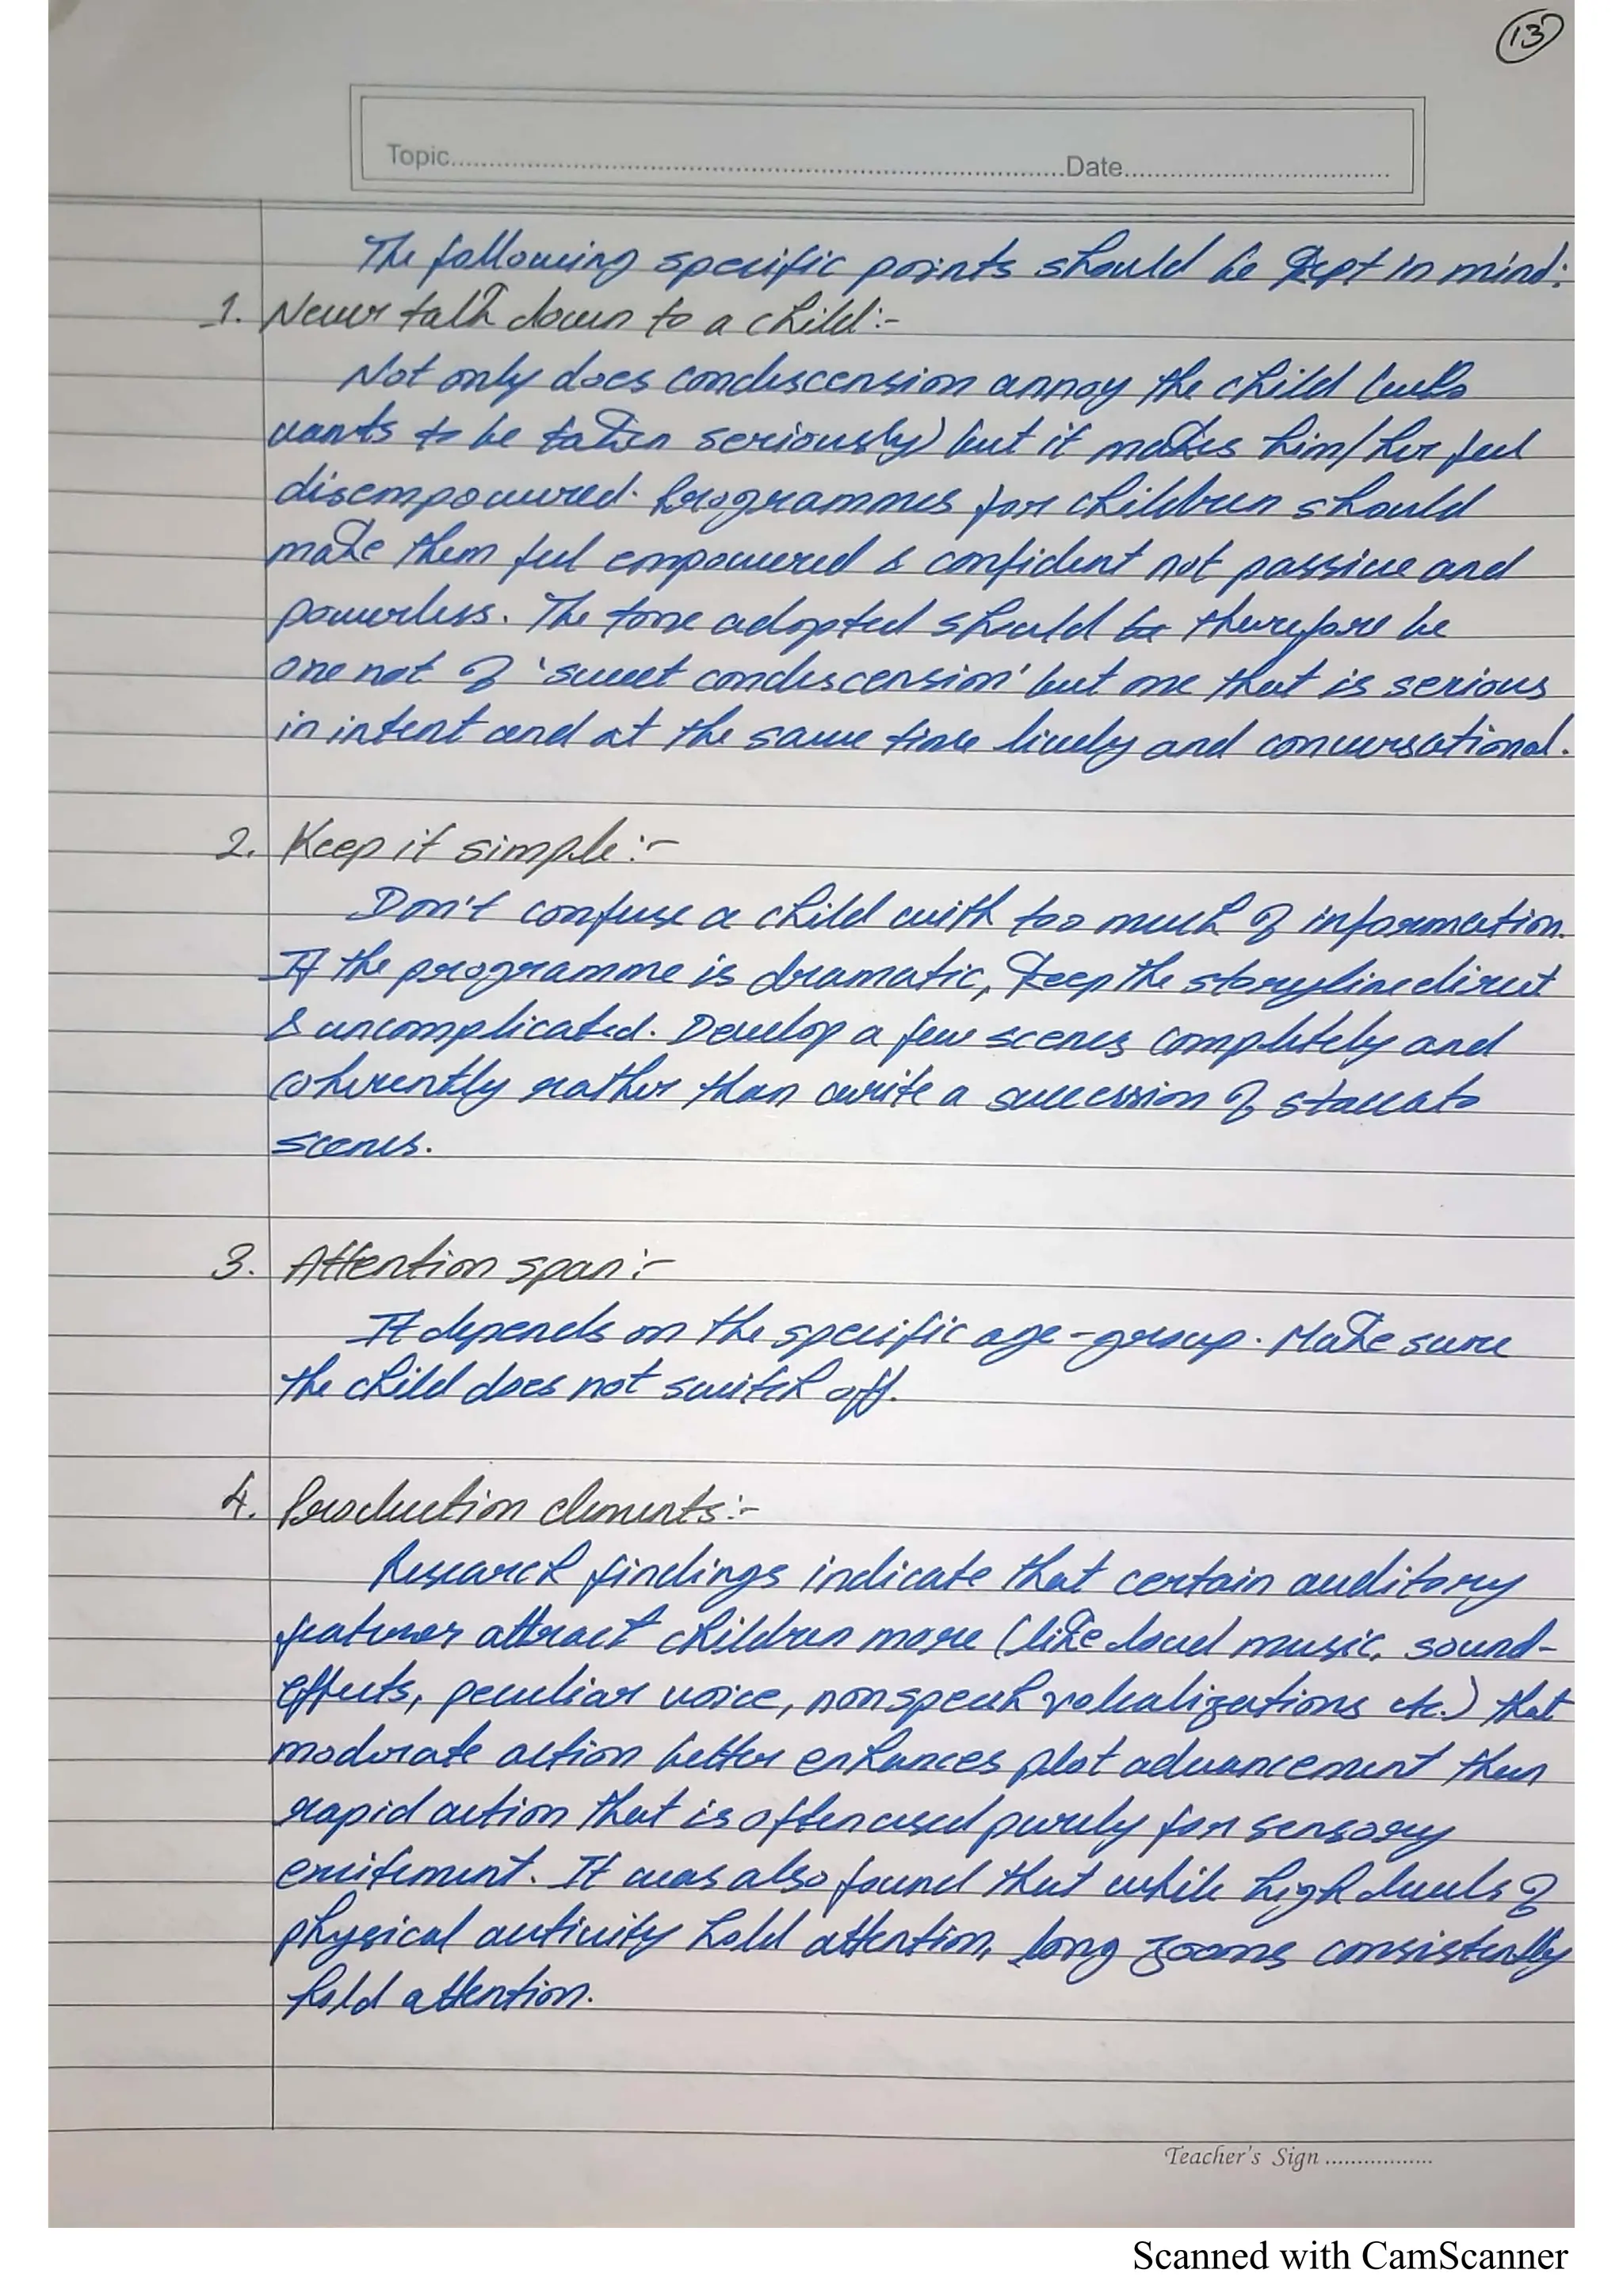 13
Topic.....................Date.....................
The following specific points should be kept in mind:
1. Never talk down to a child:-
Not only does condescension annoy the child (who
wants to be taken seriously) but it makes him/her feel
disempowered. Programmes for children should
make them feel empowered & confident not passive and
powerless. The tone adopted should be therefore be
one not of 'sweet condescension' but one that is serious
in intent and at the same time lively and conversational.
2. Keep it simple:-
Don't confuse a child with too much of information.
If the programme is dramatic, keep the storyline direct
& uncomplicated. Develop a few scenes completely and
coherently rather than write a succession of staccato
scenes.
3. Attention span:-
It depends on the specific age-group. Make sure
the child does not switch off.
4. Production elements:-
Research findings indicate that certain auditory
features attract children more (like loud music, sound-
effects, peculiar voice, nonspeech vocalizations etc.) that
moderate action better enhances plot advancement than
rapid action that is often used purely for sensory
excitement. It was also found that while high levels of
physical activity hold attention, long zooms consistently
hold attention.
Teacher's Sign ..................
Scanned with CamScanner